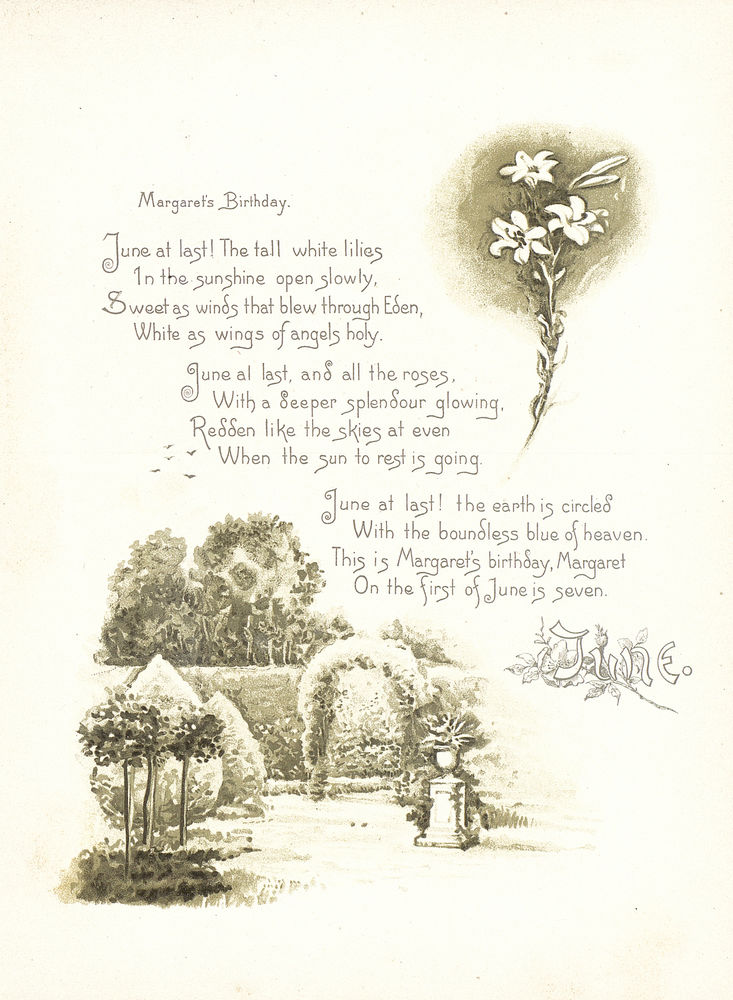 Margaret's Birthday.
June at last! The tall white lilies
In the sunshine open slowly,
Sweet as winds that blew through Eden,
White as wings of angels holy.
June at last, and all the roses,
With a deeper splendour glowing,
Redden like the skies at even
When the sun to rest is going.
June at last! the earth is circled
With the boundless blue of heaven.
This is Margaret's birthday, Margaret
On the first of June is seven.
June.